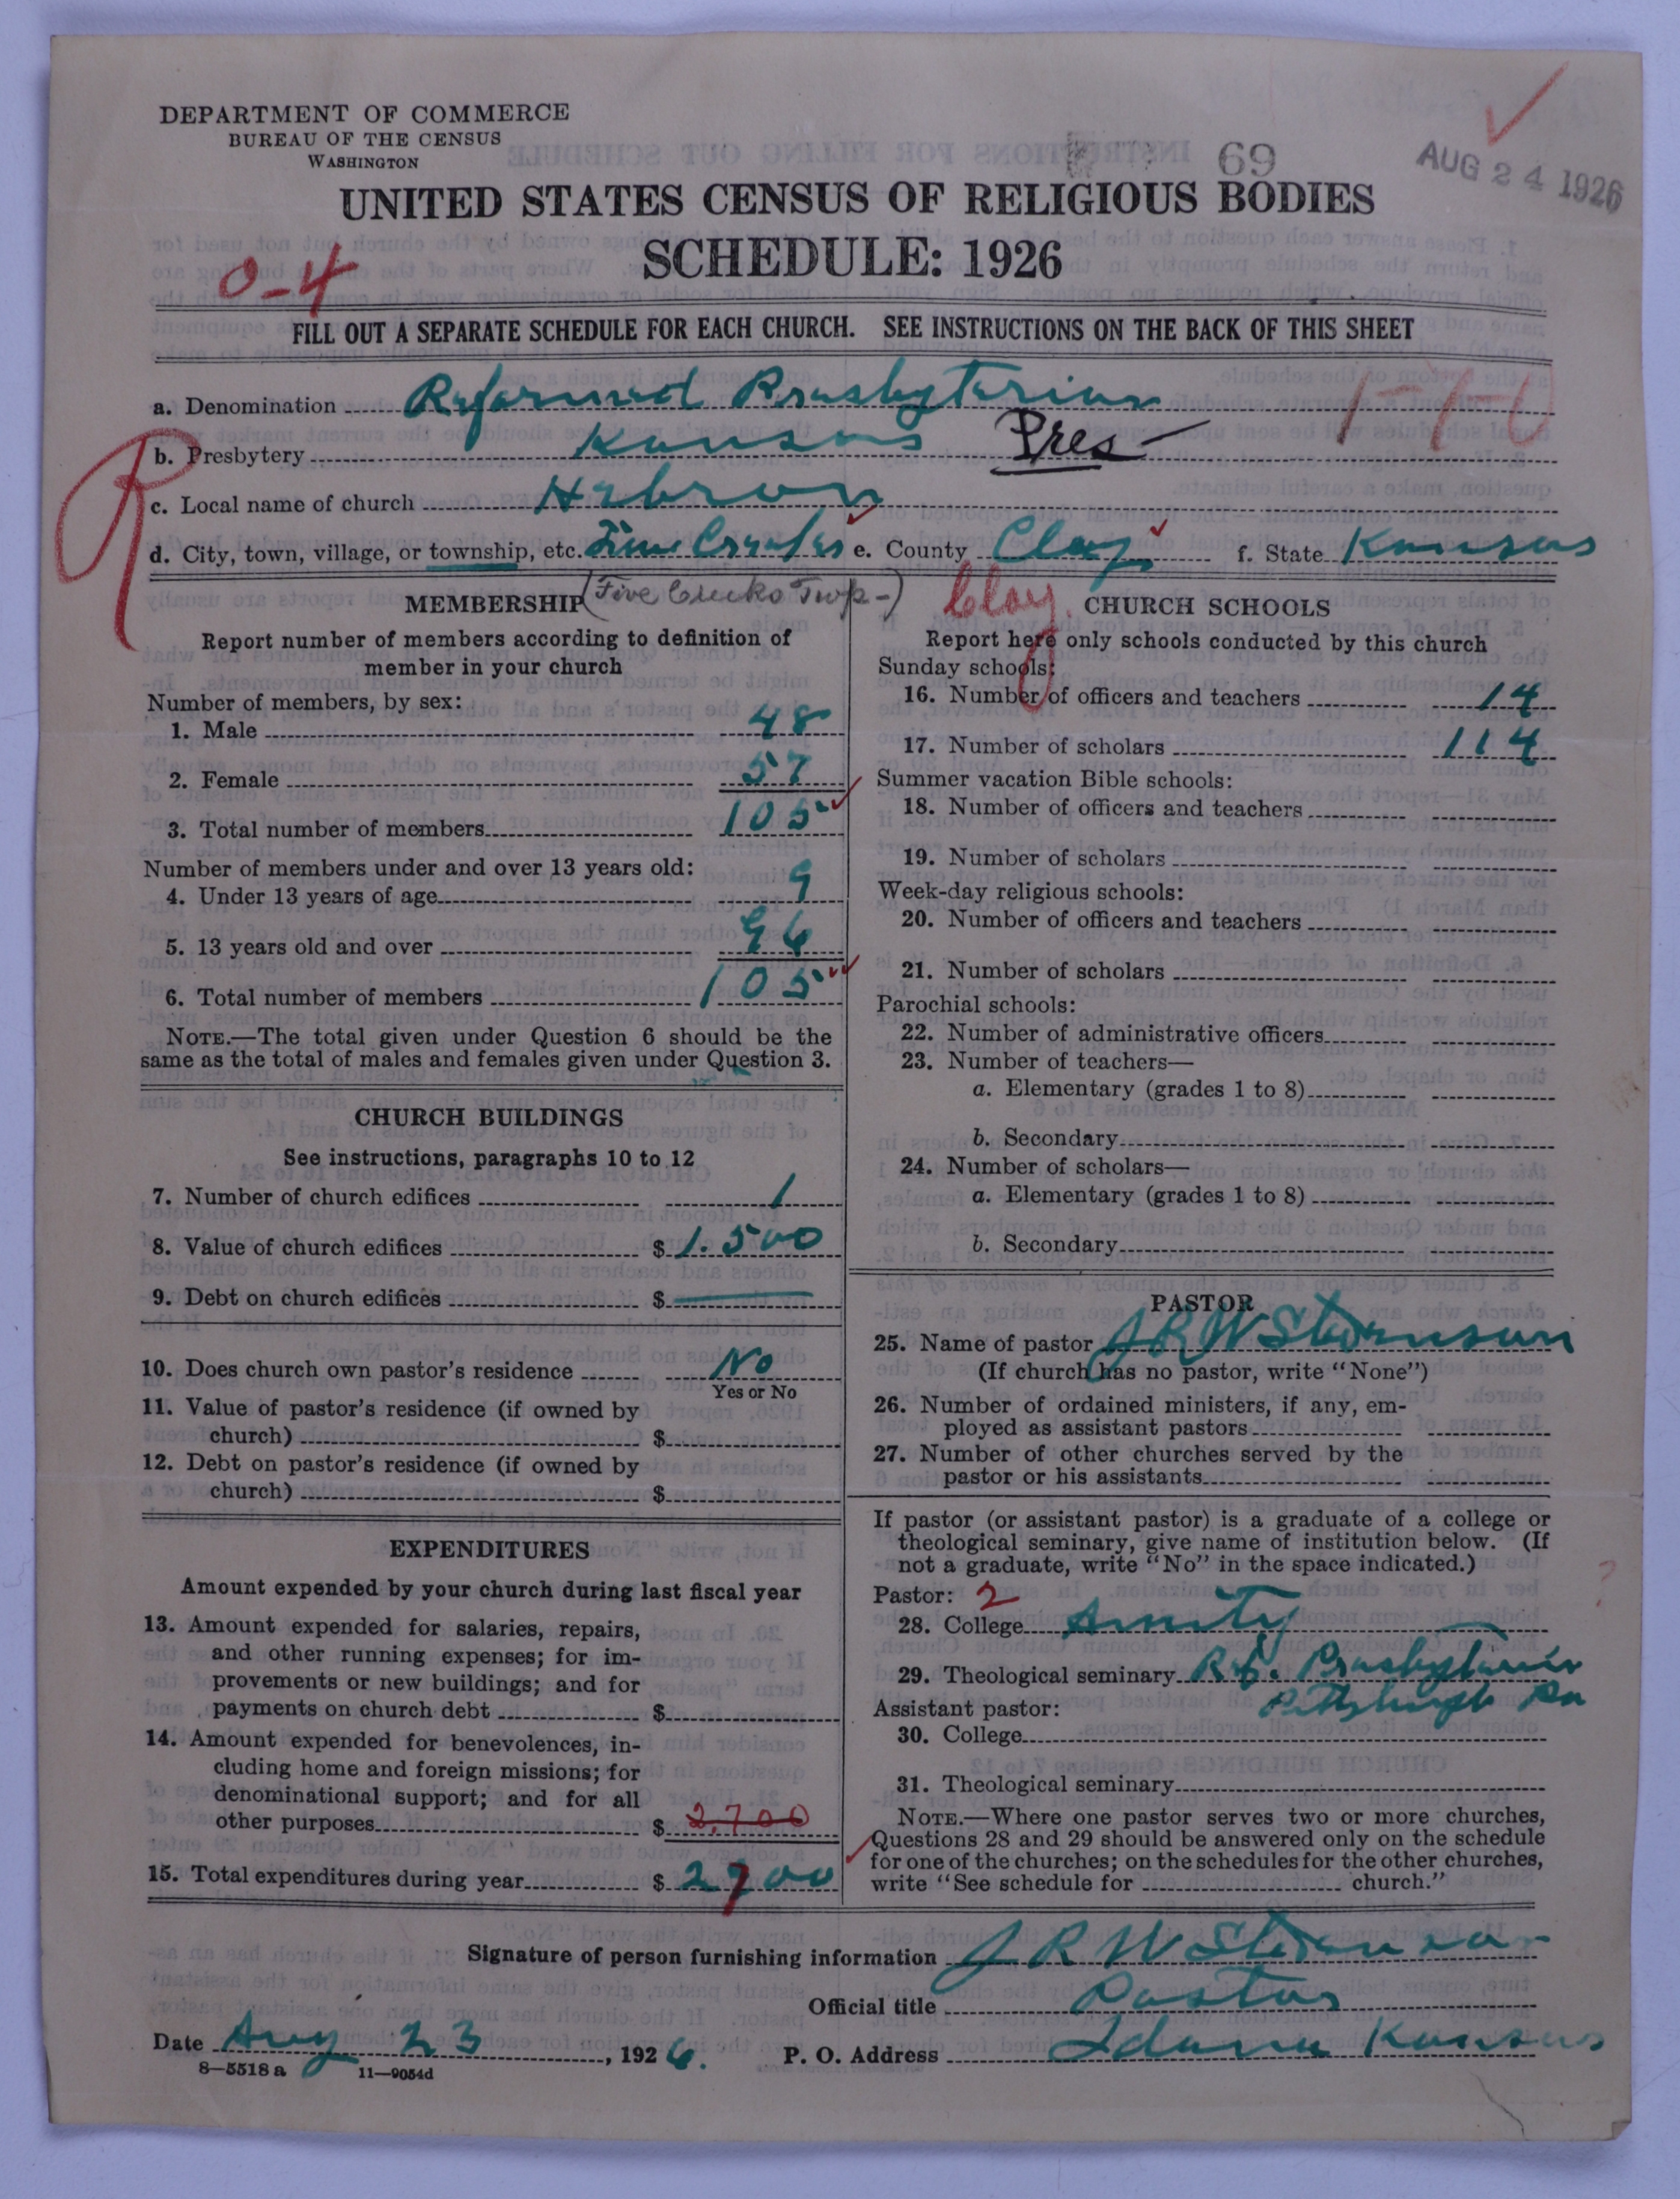 DEPARTMENT OF COMMERCE
BUREAU OF THE CENSUS
WASHINGTON
69
AUG 24 1926
UNITED STATES CENSUS OF RELIGIOUS BODIES
SCHEDULE: 1926
0-4
FILL OUT A SEPARATE SCHEDULE FOR EACH CHURCH. SEE INSTRUCTIONS ON THE BACK OF THIS SHEET
a. Denomination Reformed Presbyterian
b. Presbytery Kansas Pres
R
c. Local name of church Hebron
d. City, town, village, or township, etc. Five Creeks e. County Clay f. State Kansas
(Five Creeks Twp-) Clay
MEMBERSHIP
Report number of members according to definition of
member in your church
Number of members, by sex:
1. Male 48
2. Female 57
3. Total number of members 105
Number of members under and over 13 years old:
4. Under 13 years of age 9
5. 13 years old and over 96
6. Total number of members 105
NOTE.—The total given under Question 6 should be the
same as the total of males and females given under Question 3.
CHURCH BUILDINGS
See instructions, paragraphs 10 to 12
7. Number of church edifices 1
8. Value of church edifices $ 1.500
9. Debt on church edifices $
10. Does church own pastor's residence No
Yes or No
11. Value of pastor's residence (if owned by
church) $
12. Debt on pastor's residence (if owned by
church) $
EXPENDITURES
Amount expended by your church during last fiscal year
13. Amount expended for salaries, repairs,
and other running expenses; for im-
provements or new buildings; and for
payments on church debt $
14. Amount expended for benevolences, in-
cluding home and foreign missions; for
denominational support; and for all
other purposes $ 2,700
15. Total expenditures during year $ 2700
CHURCH SCHOOLS
Report here only schools conducted by this church
Sunday schools:
16. Number of officers and teachers 14
17. Number of scholars 114
Summer vacation Bible schools:
18. Number of officers and teachers
19. Number of scholars
Week-day religious schools:
20. Number of officers and teachers
21. Number of scholars
Parochial schools:
22. Number of administrative officers
23. Number of teachers—
a. Elementary (grades 1 to 8)
b. Secondary
24. Number of scholars—
a. Elementary (grades 1 to 8)
b. Secondary
PASTOR
25. Name of pastor J R W Stevenson
(If church has no pastor, write "None")
26. Number of ordained ministers, if any, em-
ployed as assistant pastors
27. Number of other churches served by the
pastor or his assistants
If pastor (or assistant pastor) is a graduate of a college or
theological seminary, give name of institution below. (If
not a graduate, write "No" in the space indicated.)
Pastor: 2
28. College Amity
29. Theological seminary Ref. Presbyterian
Pittsburgh Pa
Assistant pastor:
30. College
31. Theological seminary
NOTE.—Where one pastor serves two or more churches,
Questions 28 and 29 should be answered only on the schedule
for one of the churches; on the schedules for the other churches,
write "See schedule for church."
Signature of person furnishing information J R W Stevenson
Official title Pastor
Date Aug 23, 1926. P. O. Address Idana Kansas
8—5518 a 11—9054d